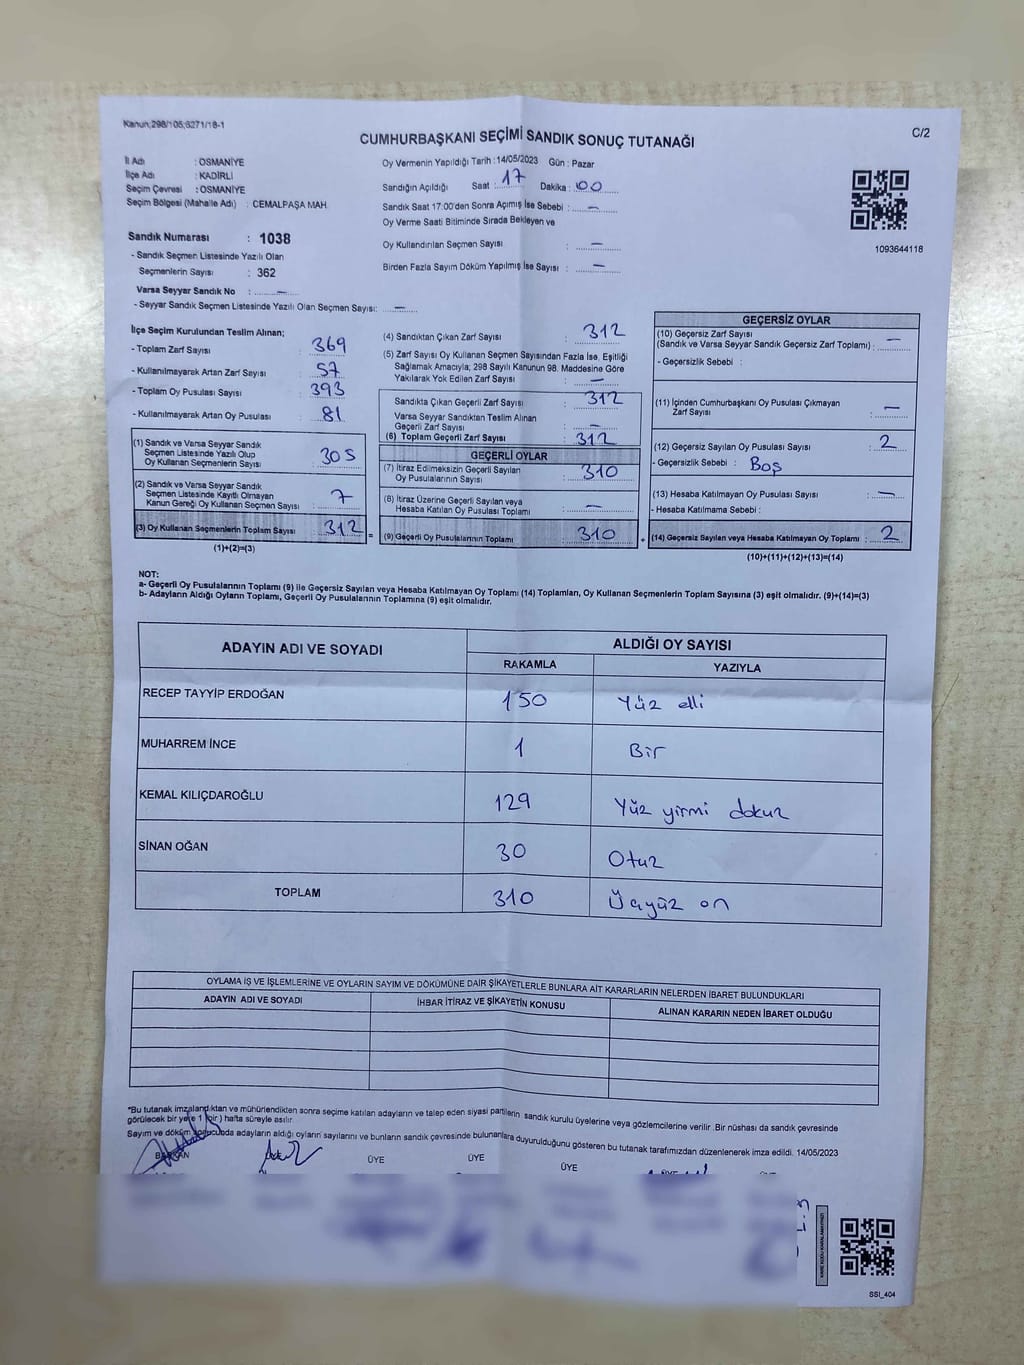 Kanun;298/105;6271/18-1
CUMHURBAŞKANI SEÇİMİ SANDIK SONUÇ TUTANAĞI
C/2
İl Adı : OSMANİYE
İlçe Adı : KADİRLİ
Seçim Çevresi : OSMANİYE
Seçim Bölgesi (Mahalle Adı) : CEMALPAŞA MAH.
Oy Vermenin Yapıldığı Tarih :14/05/2023 Gün : Pazar
Sandığın Açıldığı Saat : 17 Dakika : 00
Sandık Saat 17.00'den Sonra Açımış İse Sebebi : —
Oy Verme Saati Bitiminde Sırada Bekleyen ve
Oy Kullandırılan Seçmen Sayısı : —
Birden Fazla Sayım Döküm Yapılmış İse Sayısı : —
1093644118
Sandık Numarası : 1038
- Sandık Seçmen Listesinde Yazılı Olan
Seçmenlerin Sayısı : 362
Varsa Seyyar Sandık No : —
- Seyyar Sandık Seçmen Listesinde Yazılı Olan Seçmen Sayısı: —
İlçe Seçim Kurulundan Teslim Alınan;
- Toplam Zarf Sayısı : 369
- Kullanılmayarak Artan Zarf Sayısı : 57
- Toplam Oy Pusulası Sayısı : 393
- Kullanılmayarak Artan Oy Pusulası : 81
(1) Sandık ve Varsa Seyyar Sandık
Seçmen Listesinde Yazılı Olup
Oy Kullanan Seçmenlerin Sayısı : 305
(2) Sandık ve Varsa Seyyar Sandık
Seçmen Listesinde Kayıtlı Olmayan
Kanun Gereği Oy Kullanan Seçmen Sayısı : 7
(3) Oy Kullanan Seçmenlerin Toplam Sayısı : 312
(1)+(2)=(3)
(4) Sandıktan Çıkan Zarf Sayısı : 312
(5) Zarf Sayısı Oy Kullanan Seçmen Sayısından Fazla İse, Eşitliği
Sağlamak Amacıyla; 298 Sayılı Kanunun 98. Maddesine Göre
Yakılarak Yok Edilen Zarf Sayısı : —
Sandıkta Çıkan Geçerli Zarf Sayısı : 312
Varsa Seyyar Sandıktan Teslim Alınan
Geçerli Zarf Sayısı : —
(6) Toplam Geçerli Zarf Sayısı : 312
GEÇERLİ OYLAR
(7) İtiraz Edilmeksizin Geçerli Sayılan
Oy Pusulalarının Sayısı : 310
(8) İtiraz Üzerine Geçerli Sayılan veya
Hesaba Katılan Oy Pusulası Toplamı : —
= (9) Geçerli Oy Pusulalarının Toplamı : 310
GEÇERSİZ OYLAR
(10) Geçersiz Zarf Sayısı
(Sandık ve Varsa Seyyar Sandık Geçersiz Zarf Toplamı) : —
- Geçersizlik Sebebi :
(11) İçinden Cumhurbaşkanı Oy Pusulası Çıkmayan
Zarf Sayısı : —
(12) Geçersiz Sayılan Oy Pusulası Sayısı : 2
- Geçersizlik Sebebi : Boş
(13) Hesaba Katılmayan Oy Pusulası Sayısı : —
- Hesaba Katılmama Sebebi :
+ (14) Geçersiz Sayılan veya Hesaba Katılmayan Oy Toplamı : 2
(10)+(11)+(12)+(13)=(14)
NOT:
a- Geçerli Oy Pusulalarının Toplamı (9) ile Geçersiz Sayılan veya Hesaba Katılmayan Oy Toplamı (14) Toplamları, Oy Kullanan Seçmenlerin Toplam Sayısına (3) eşit olmalıdır. (9)+(14)=(3)
b- Adayların Aldığı Oyların Toplamı, Geçerli Oy Pusulalarının Toplamına (9) eşit olmalıdır.
ADAYIN ADI VE SOYADI ALDIĞI OY SAYISI
RAKAMLA YAZIYLA
RECEP TAYYİP ERDOĞAN 150 Yüz elli
MUHARREM İNCE 1 Bir
KEMAL KILIÇDAROĞLU 129 Yüz yirmi dokuz
SİNAN OĞAN 30 Otuz
TOPLAM 310 Üçyüz on
OYLAMA İŞ VE İŞLEMLERİNE VE OYLARIN SAYIM VE DÖKÜMÜNE DAİR ŞİKAYETLERLE BUNLARA AİT KARARLARIN NELERDEN İBARET BULUNDUKLARI
ADAYIN ADI VE SOYADI İHBAR İTİRAZ VE ŞİKAYETİN KONUSU ALINAN KARARIN NEDEN İBARET OLDUĞU
*Bu tutanak imzalandıktan ve mühürlendikten sonra seçime katılan adayların ve talep eden siyasi partilerin sandık kurulu üyelerine veya gözlemcilerine verilir. Bir nüshası da sandık çevresinde
görülecek bir yere 1 (bir) hafta süreyle asılır.
Sayım ve döküm sonucunda adayların aldığı oyların sayılarını ve bunların sandık çevresinde bulunanlara duyurulduğunu gösteren bu tutanak tarafımızdan düzenlenerek imza edildi. 14/05/2023
BAŞKAN ÜYE ÜYE ÜYE
SSI_404